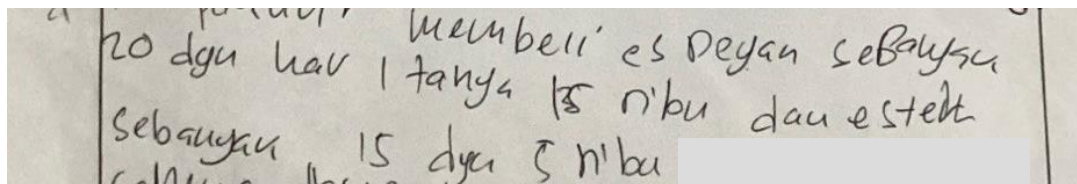 membeli es Degan sebanyak
20 dgn har 1 tanya 15 ribu dan esteh
sebanyak 15 dgn 5 ribu